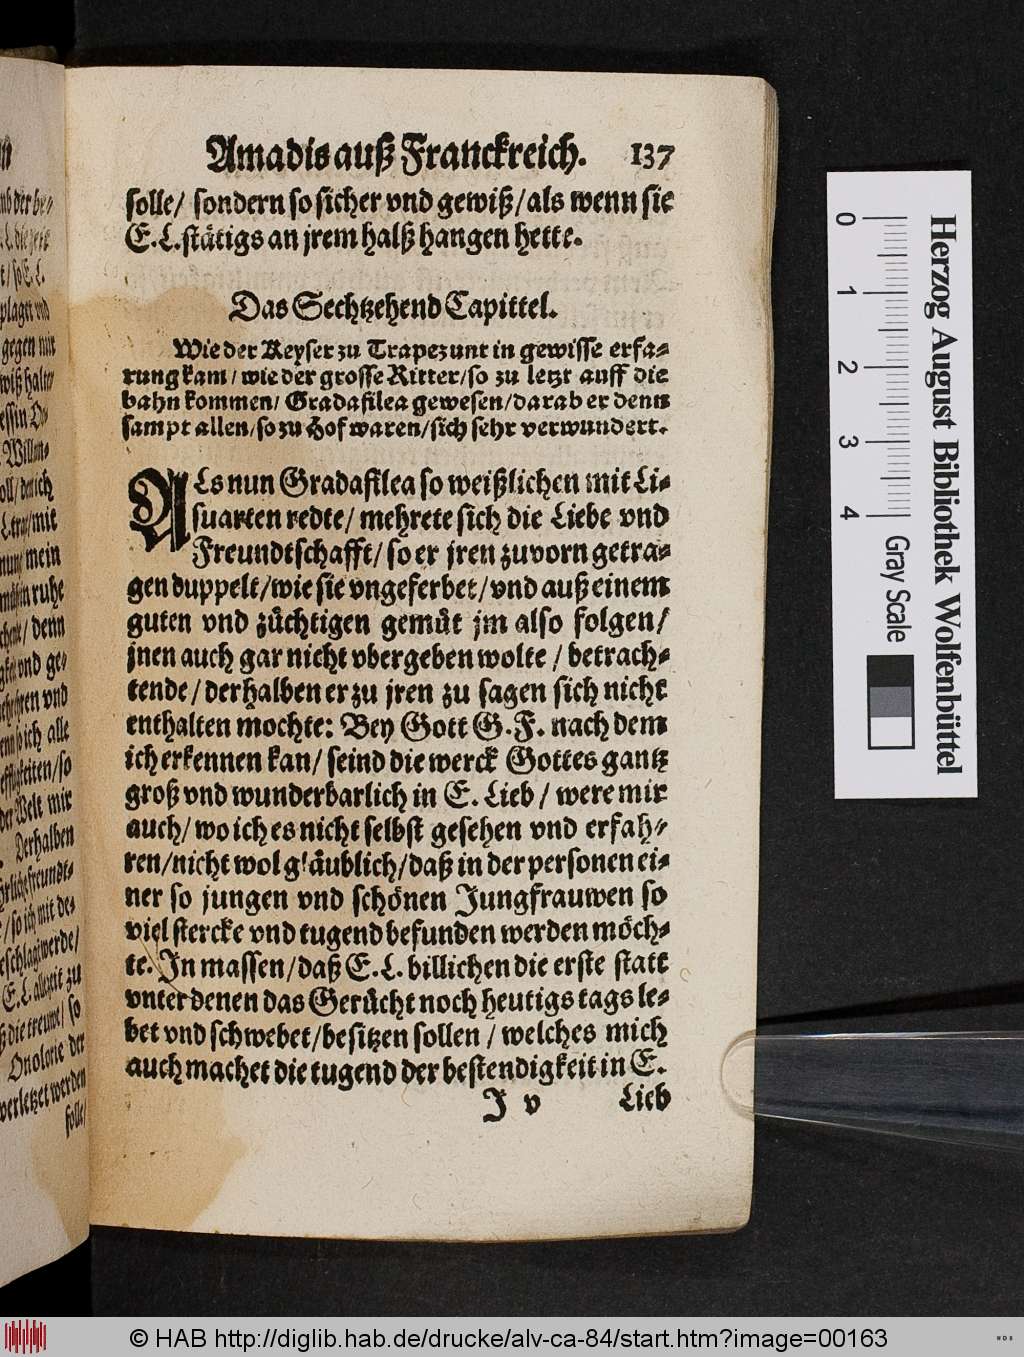 Amadis auß Franckreich. 137
solle/ sondern so sicher vnd gewiß/als wenn sie
E.L.stätigs an jrem halß hangen hette.
Das Sechtzehend Capittel.
Wie der Keyser zu Trapezunt in gewisse erfa-
rung kam/wie der grosse Ritter/so zu letzt auff die
bahn kommen/ Gradafilea gewesen/darab er denn
sampt allen/so zu Hof waren/sich sehr verwundert.
ALs nun Gradafilea so weißlichen mit Li-
suarten redte/ mehrete sich die Liebe vnd
Freundtschafft/so er jren zuvorn getra-
gen duppelt/wie sie vngeferbet/vnd auß einem
guten vnd züchtigen gemüt jm also folgen/
jnen auch gar nicht vbergeben wolte / betrach-
tende/derhalben er zu jren zu sagen sich nicht
enthalten mochte: Bey Gott G.F. nach dem
ich erkennen kan/ seind die werck Gottes gantz
groß vnd wunderbarlich in E. Lieb / were mir
auch/wo ich es nicht selbst gesehen vnd erfah-
ren/nicht wol gläublich/daß in der personen ei-
ner so jungen vnd schönen Jungfrauwen so
viel stercke vnd tugend befunden werden möch-
te. In massen/daß E.L. billichen die erste statt
vnter denen das Gerücht noch heutigs tags le-
bet vnd schwebet/besitzen sollen / welches mich
auch machet die tugend der bestendigkeit in E.
J v Lieb
plagen vnd
gegen mir
Willen-
mein
ruhe
denn
vnd ge-
vnd
so ich alle
so
der Welt mir
Derhalben
so ich mit de-
E.L. allezeit zu
so
Onolorie der
verletzet werden
solle/
0 1 2 3 4
Gray Scale
Herzog August Bibliothek Wolfenbüttel
© HAB http://diglib.hab.de/drucke/alv-ca-84/start.htm?image=00163
WDB